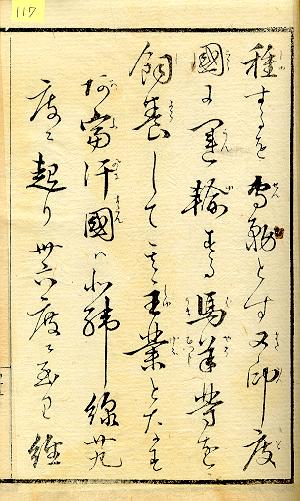 117
種するを専務とす又印度
國に運輸する馬羊等を
飼養して主業と
阿富汗國ハ北緯線廿九
度に起り卅六度に至り經